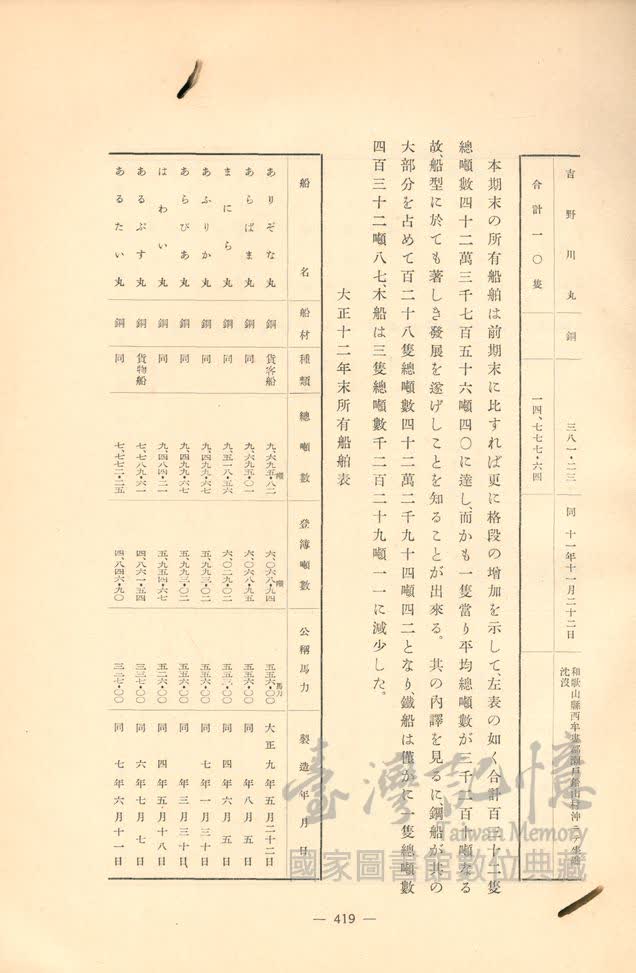 吉野川丸 鋼 三八一・二三 同 十一年十一月二十二日 和歌山縣西牟婁郡瀬戸鉛山村沖
沈沒
合計一〇隻 一四、七七七・六四
本期末の所有船舶は前期末に比すれば更に格段の增加を示して、左表の如く合計百三十二隻
總噸數四十二萬三千七百五十六噸四〇に達し、而かも一隻當り平均總噸數が三千二百十噸なる
故、船型に於ても著しき發展を遂げしことを知ることが出來る。其の內譯を見るに、鋼船が其の
大部分を占めて百二十八隻總噸數四十二萬二千九十四噸四二となり、鐵船は僅かに一隻總噸數
四百三十二噸八七、木船は三隻總噸數千二百二十九噸一一に減少した。
大正十二年末所有船舶表
船名 船材 種類 總噸數 登簿噸數 公稱馬力 製造年月日
ありぞな丸 鋼 貨客船 九、六九五・八二噸 六、〇六八・九四噸 五五六・〇〇馬力 大正九年五月二十二日
あらばま丸 鋼 同 九、六九五・〇一 六、〇六八・九五 五五六・〇〇 同 年八月五日
まにら丸 鋼 同 九、五一八・五六 六、〇二九・〇二 五五三・〇〇 同 四年六月五日
あふりか丸 鋼 同 九、四九九・六七 五、九九三・〇二 五五六・〇〇 同 七年一月三十日
あらびあ丸 鋼 同 九、四九九・六七 五、九九三・〇二 五五六・〇〇 同 年三月三十日
はわい丸 鋼 同 九、四八四・二一 五、九五四・六七 五二六・〇〇 同 四年五月十八日
あるぷす丸 鋼 貨物船 七、七八九・六一 四、八六一・五四 三三七・〇〇 同 六年七月七日
あるたい丸 鋼 同 七、七七二・二五 四、八四六・九〇 三二七・〇〇 同 七年六月十一日
臺灣記憶
Taiwan Memory
國家圖書館數位典藏
— 419 —